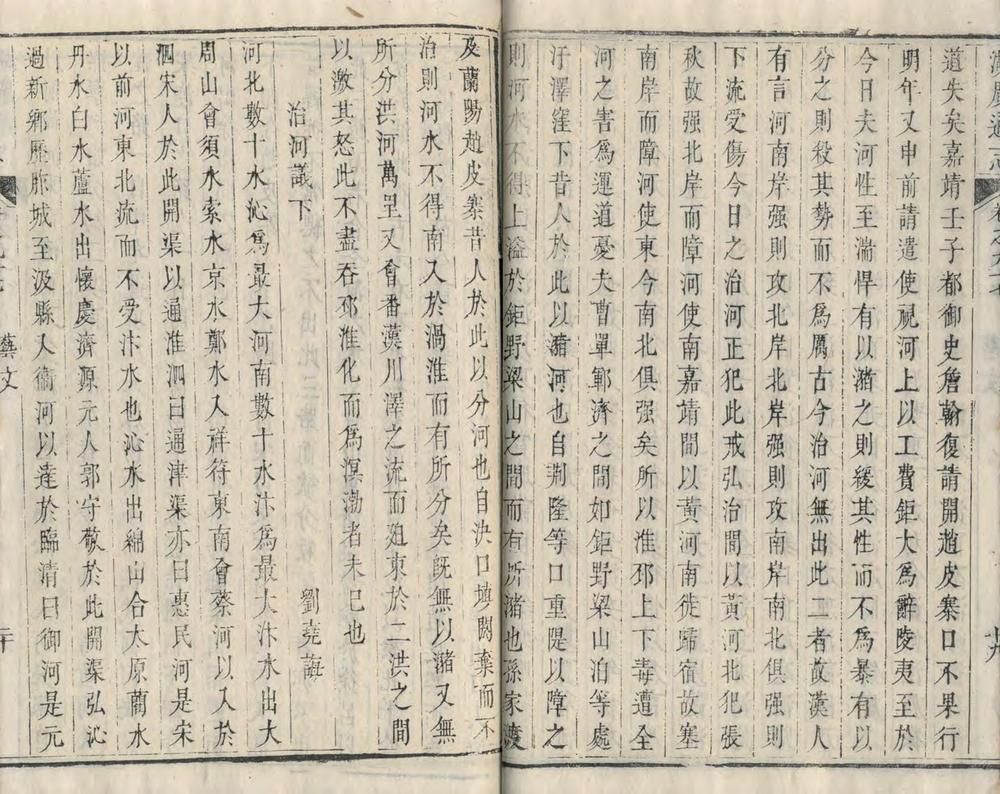 道失矣嘉靖壬子都御史詹翰復請開趙皮寨口不果行
明年又申前請遣使視河上以工費鉅大為辭陵夷至於
今日夫河性至湍悍有以瀦之則緩其性而不為暴有以
分之則殺其勢而不為厲古今治河無出此二者故漢人
有言河南岸强則攻北岸北岸强則攻南岸南北俱强則
下流受傷今日之治河正犯此戒弘治間以黃河北犯張
秋故强北岸而障河使南嘉靖間以黃河南徙歸宿故塞
南岸而障河使東今南北俱强矣所以淮邳上下毒遭全
河之害為運道憂夫曹單鄆濟之間如鉅野梁山泊等處
汙澤窪下昔人於此以瀦河也自荆隆等口重隄以障之
則河水不得上溢於鉅野梁山之間而有所瀦也孫家渡
及蘭陽趙皮寨昔人於此以分河也自決口填閼棄而不
治則河水不得南入於渦淮而有所分矣旣無以瀦又無
所分洪河萬里又會番漢川澤之流而廹東於二洪之間
以激其怒此不盡吞邳淮化而為溟渤者未已也
治河議下
劉堯誨
河北數十水沁為最大河南數十水汴為最大汴水出大
周山會須水索水京水鄭水入祥符東南會蔡河以入於
泗宋人於此開渠以通淮泗曰通津渠亦曰惠民河是宋
以前河東北流而不受汴水也沁水出綿山合太原藺水
丹水白水蘆水出懷慶濟源元人郭守敬於此開渠弘沁
過新鄉歷胙城至汲縣入衞河以達於臨清曰御河是元
藝文